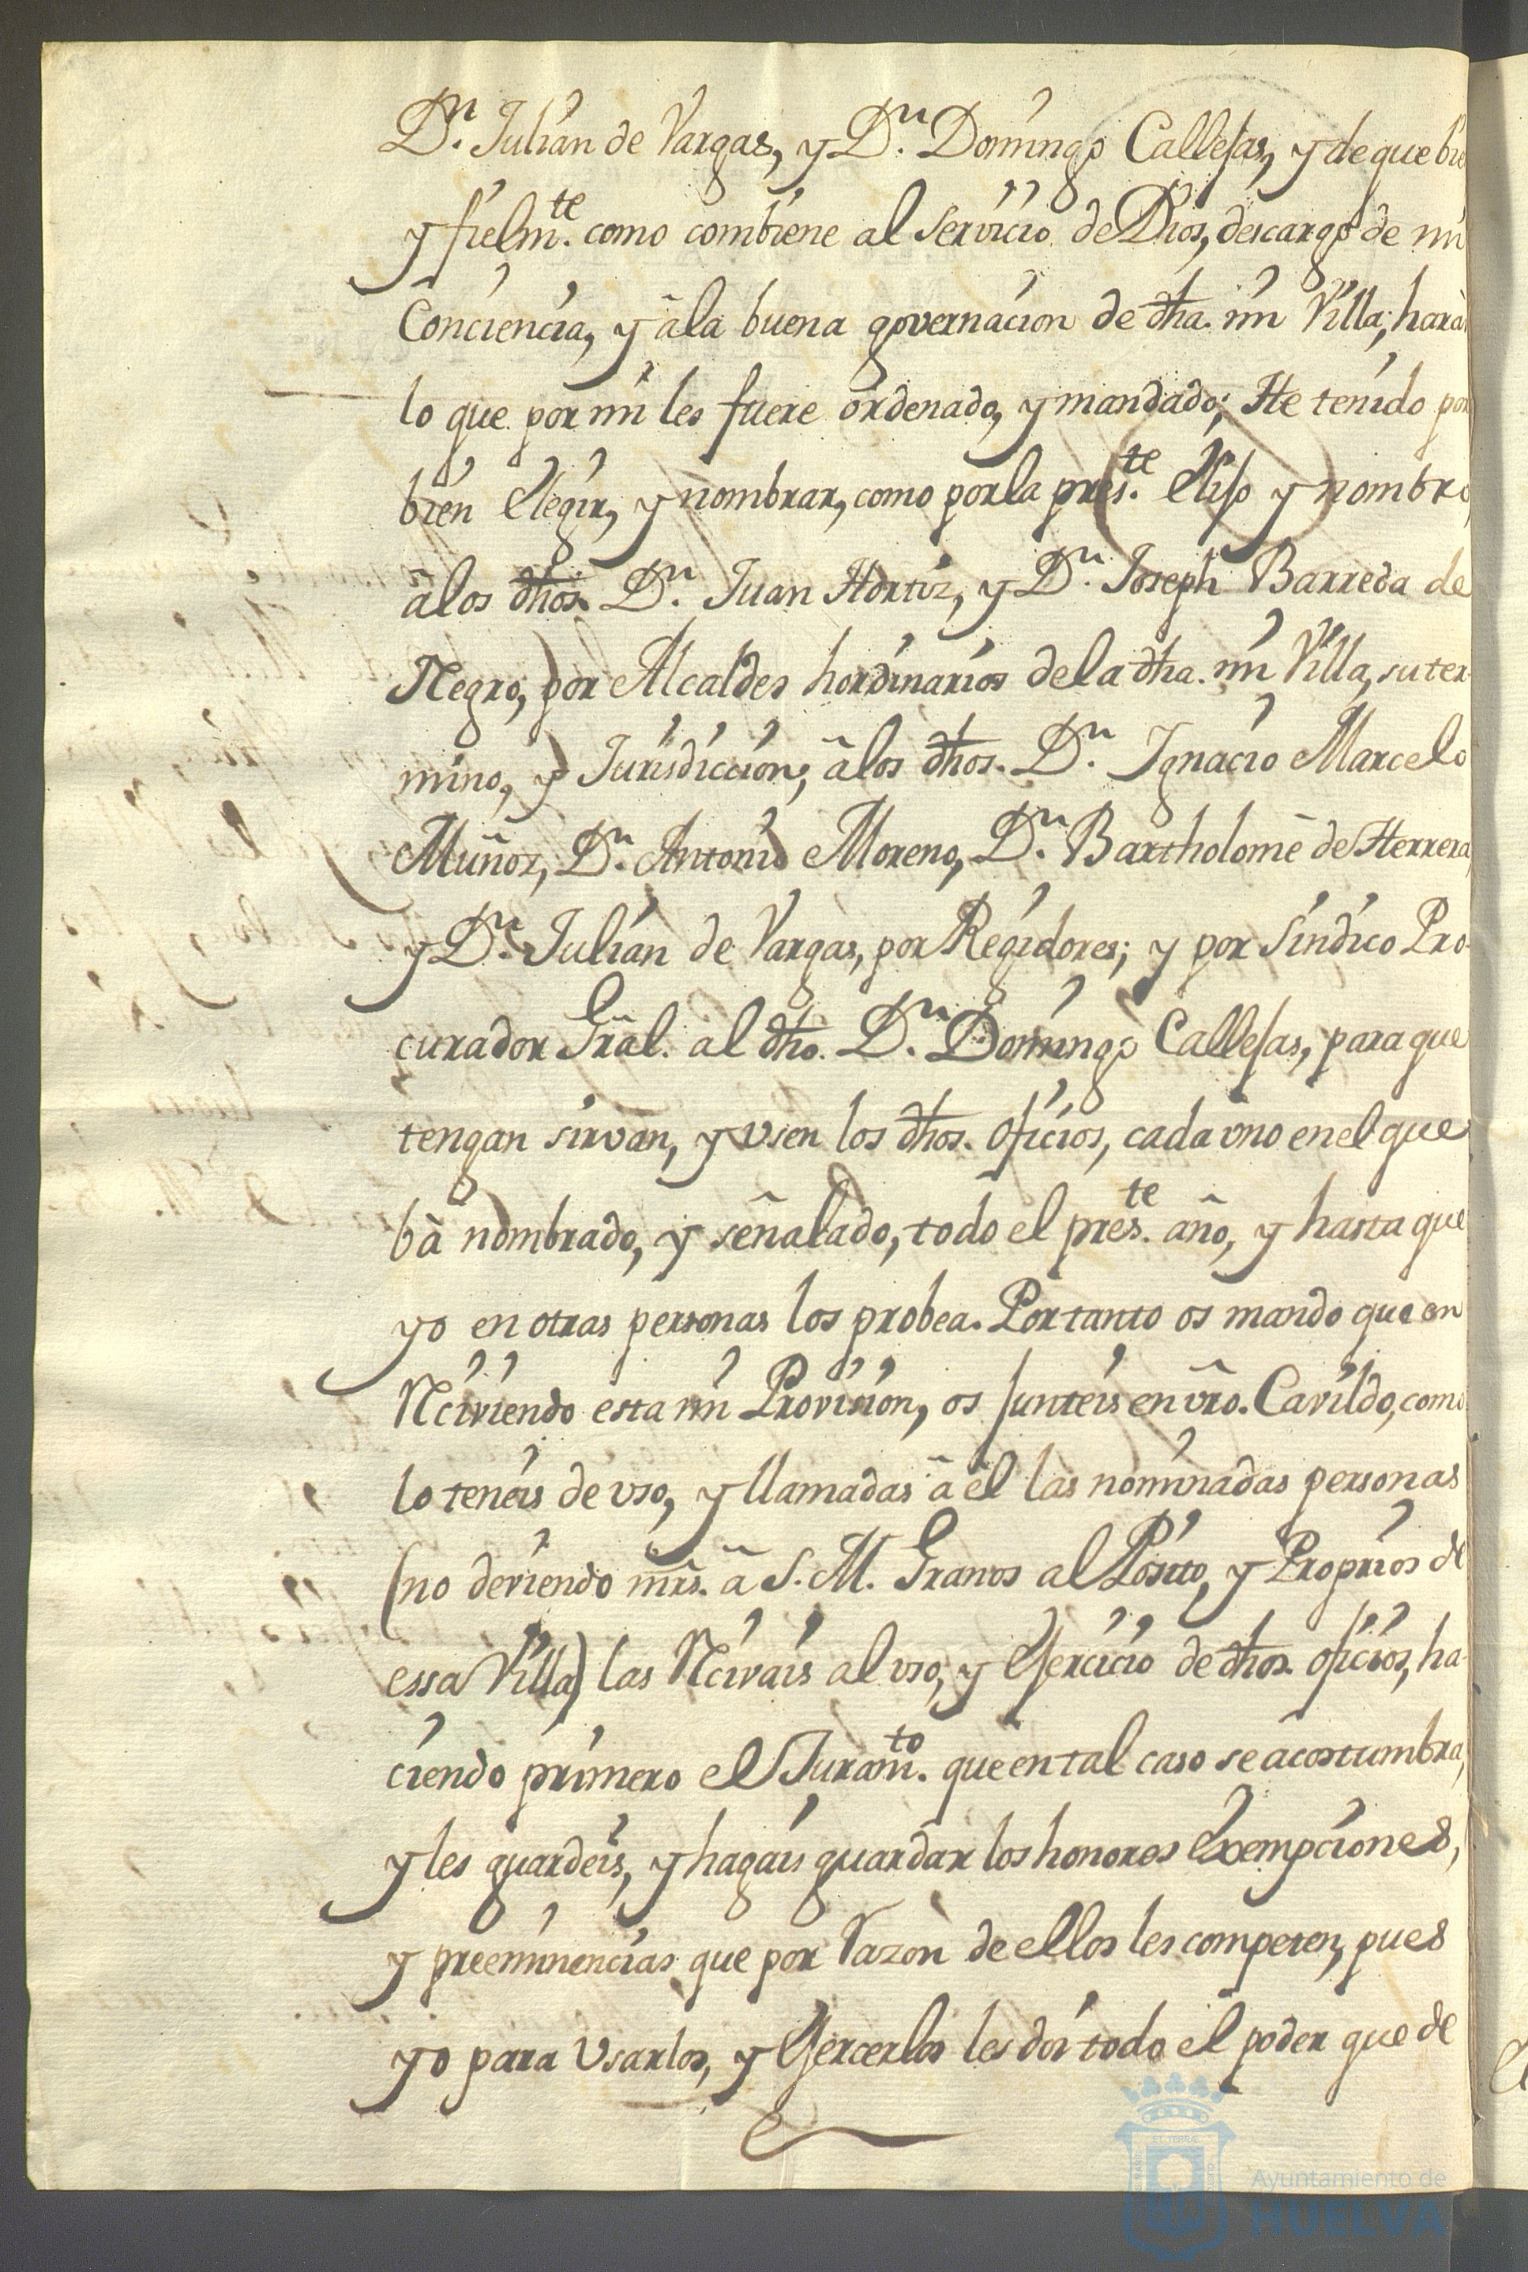 Dn. Julian de Vargas, y Dn. Domingo Callejas, y de que bie
y fielmte. como combiene al servicio de Dios, descargo de mi
Conciencia, y â la buena governacion de dha. mi Villa, harà
lo que por mi les fuere ordenado, y mandado; He tenido por
bien elegir, y nombrar, como por la preste. elijo y nombro
â los dhos. Dn. Juan Hortiz, y Dn. Joseph Barreda de
Negro, por Alcaldes hordinarios de la dha. mi Villa, su ter-
mino, y Jurisdiccion; â los dhos. Dn. Ignacio Marcelo
Muñoz, Dn. Antonio Moreno, Dn. Bartholomê de Herrera,
y Dn. Julian de Vargas, por Regidores; y por Sindico Pro-
curador Grãl. al dho. Dn. Domingo Callejas, para que
tengan sirvan, y vsen los dhos. oficios, cada vno en el que
bâ nombrado, y señalado, todo el preste. año, y hasta que
yo en otras personas los probea. Por tanto os mando que en
Reciviendo esta mi Provision, os Junteis en vro. Cavildo, como
lo teneis de vso, y llamadas â êl las nominadas personas
(no deviendo mrs. â S. M. Granos al Posito, y Proprios de
essa Villa) las Recivais al vso, y Ejercicio de dhos. oficios, ha-
ciendo primero el Juramto. que en tal caso se acostumbra,
y les guardeis, y hagais guardar los honores Exempciones,
y preeminencias que por Razon de ellos les competen, pues
yo para Vsarlos, y Ejercerlos les doi todo el poder que de
Ayuntamiento de
HUELVA